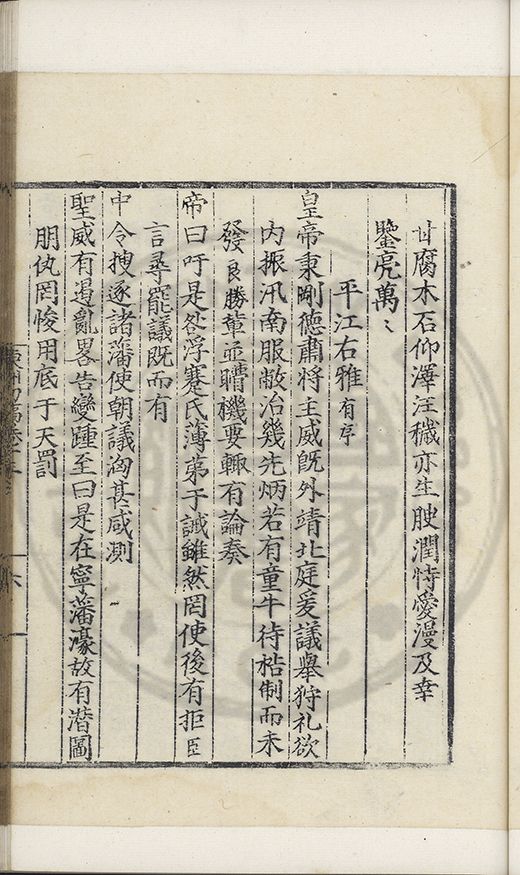 甘腐木石仰澤汪穢亦生腴潤恃愛漫及幸
鑒亮萬〻
平江右雅有序
皇帝秉剛德肅將主威旣外靖北庭爰議舉狩礼欲
內振汛南服敝治幾先炳若有童牛待牿制而未
發良勝輩並聸機要輙有論奏
帝曰吁是咎浮蹇氏薄弟于誡雖然罔使後有拒臣
言尋罷議旣而有
中令搜逐諸藩使朝議洶甚咸測
聖威有遏亂畧告變踵至曰是在寧藩濠故有潛圖
朋㐲罔悛用底于天罰
六